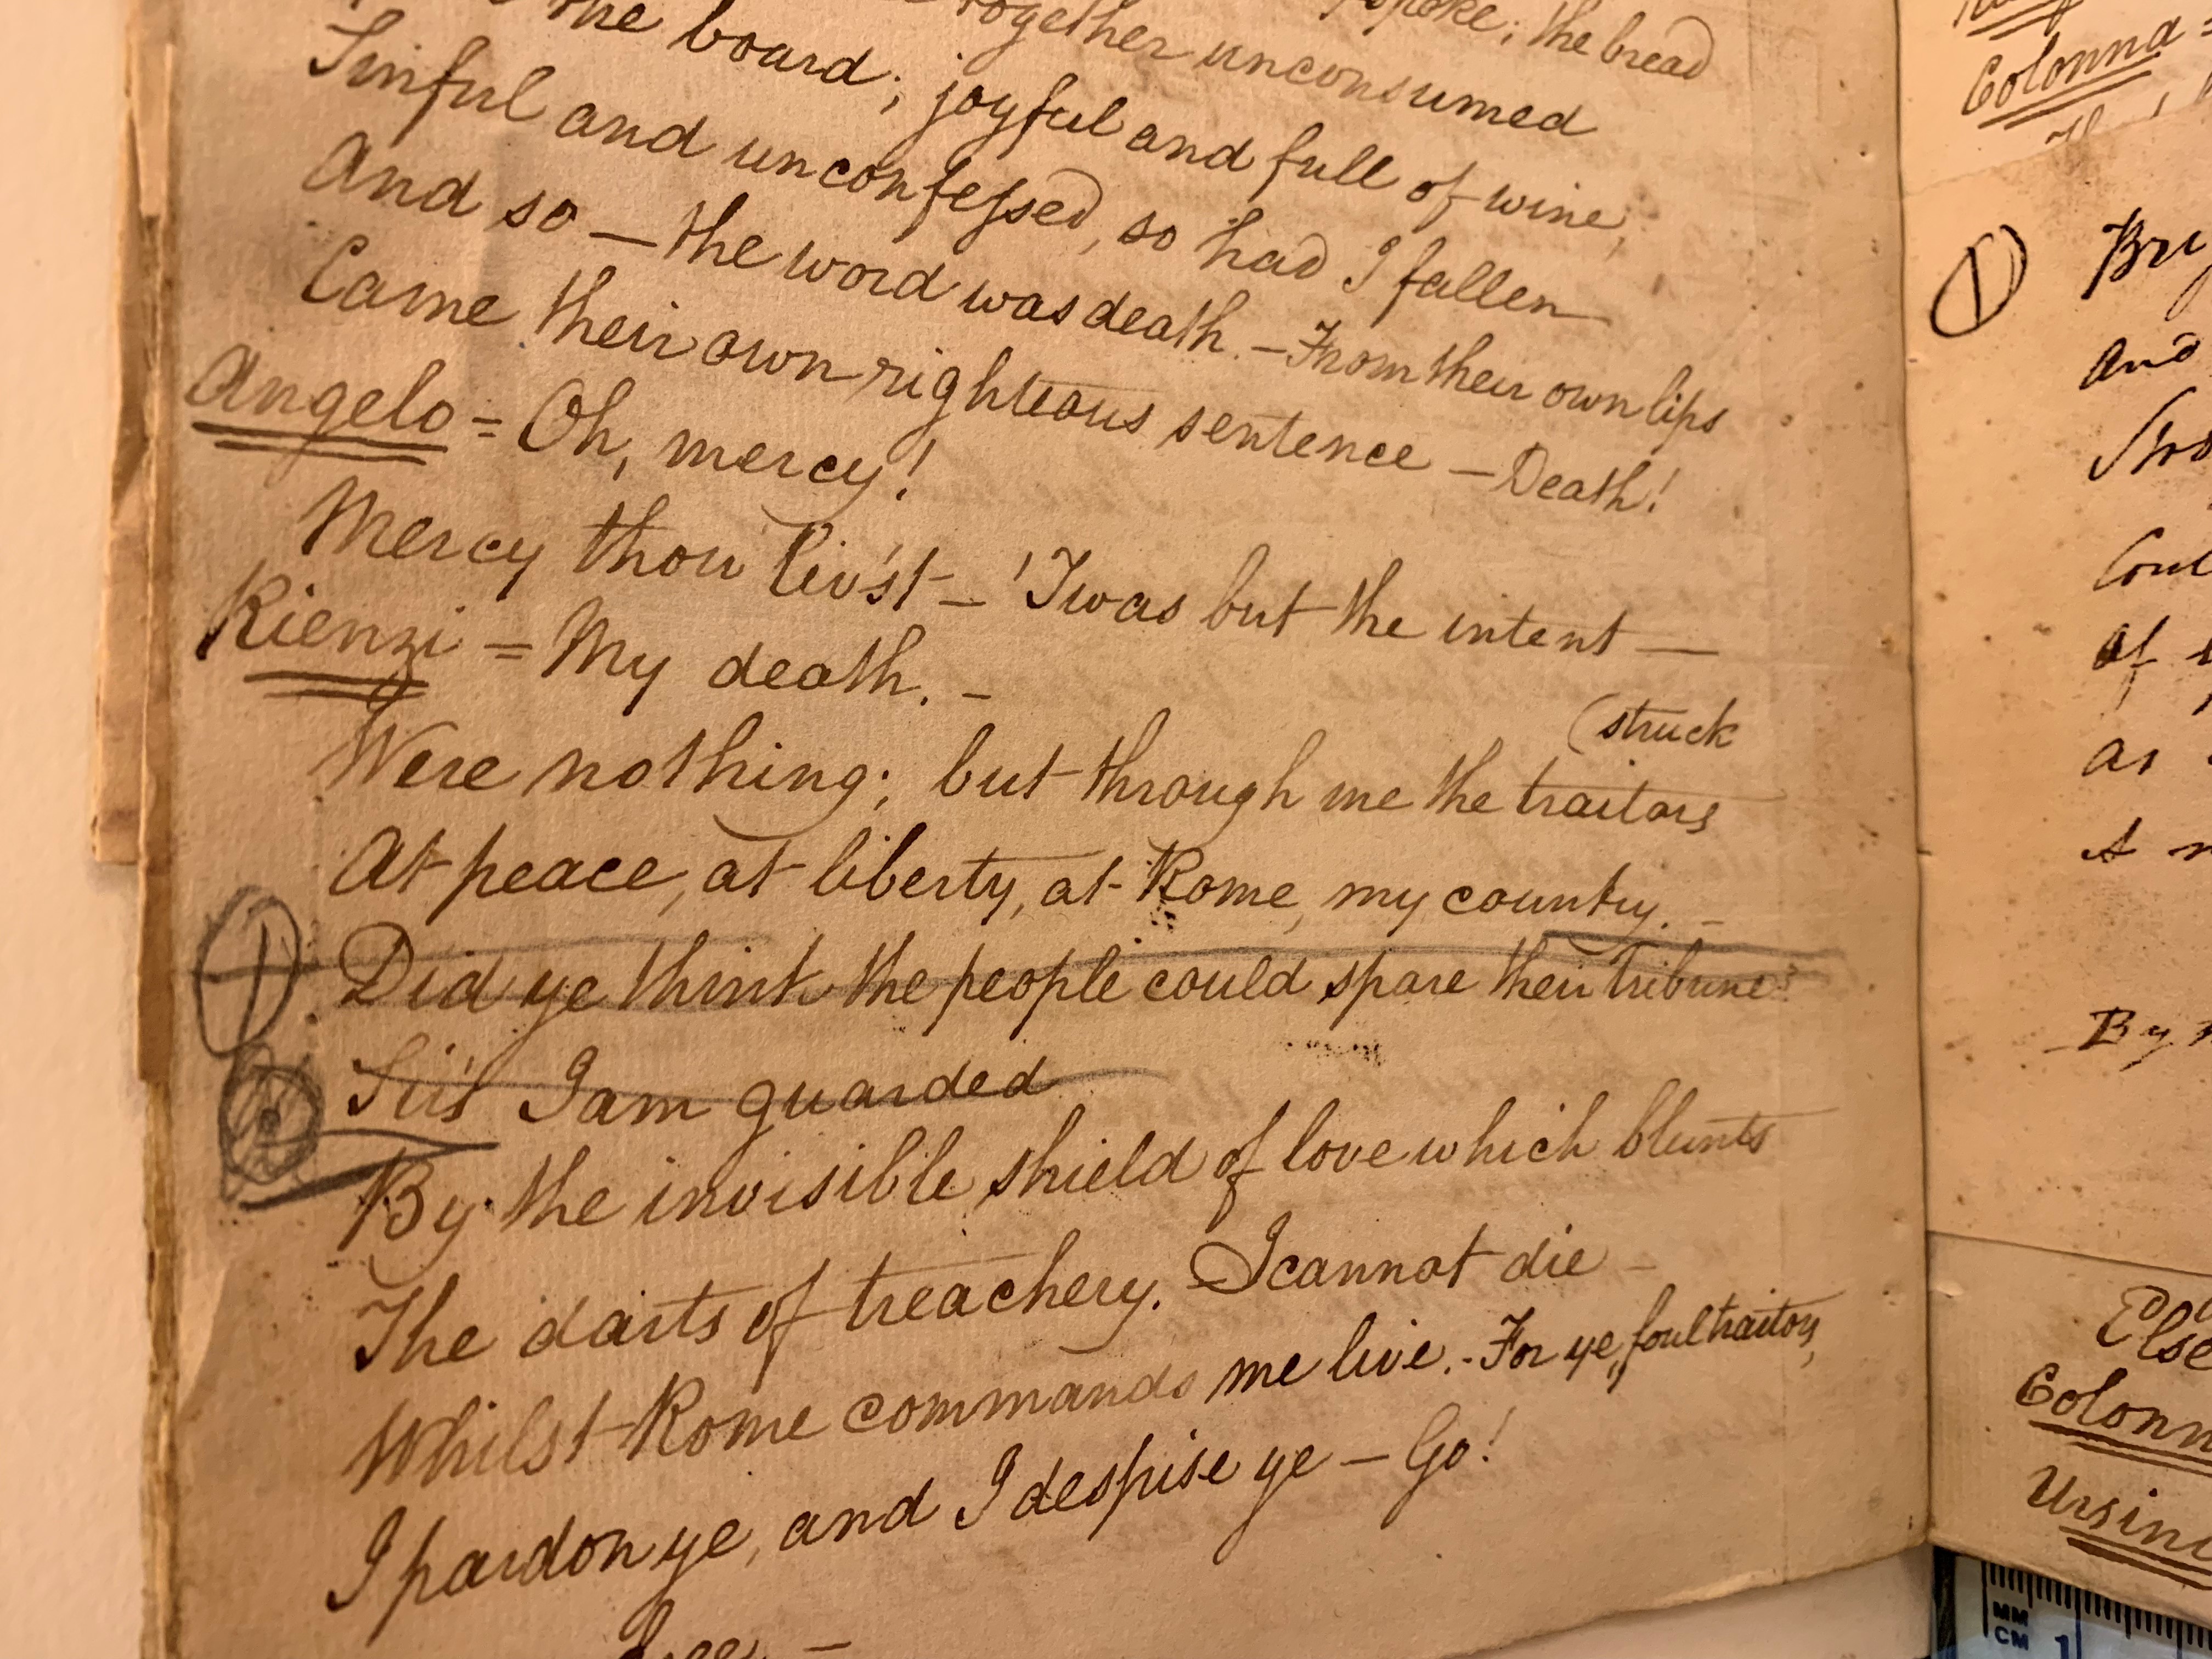 spoke; the bread
together unconsumed
the board; joyful and full of wine,
Sinful and unconfessed, so had I fallen
And so — the word was death. — From their own lips
Came their own righteous sentence — Death!
Angelo = Oh, mercy!
Mercy thou liv'st — 'Twas but the intent —
Rienzi = My death. —
(struck
Were nothing; but through me the traitors
At peace, at liberty, at Rome, my country. —
Did ye think the people could spare their tribune?
Sirs I am guarded
By the invisible shield of love which blunts
The darts of treachery. I cannot die —
Whilst Rome commands me live. - For ye, foul traitors,
I pardon ye, and I despise ye — Go!
Colonna =
Bri
And
Coul
Of
as
A
By
Else
Colonn
Ursini
MM
CM 1